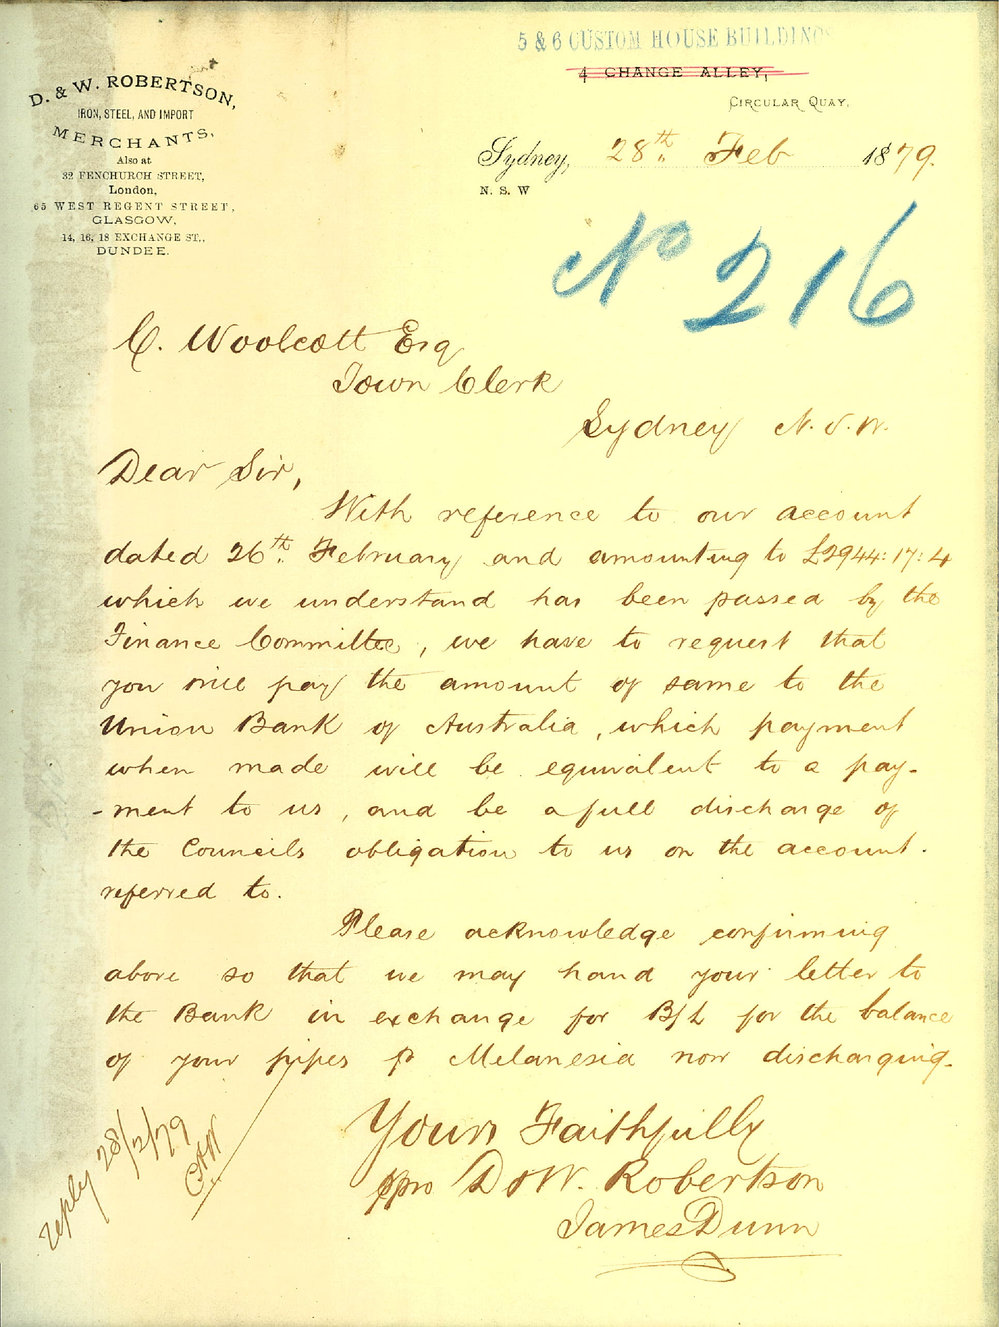 D. & W. ROBERTSON,
IRON, STEEL, AND IMPORT
MERCHANTS,
Also at
32 FENCHURCH STREET,
London,
65 WEST REGENT STREET,
GLASGOW,
14, 16, 18 EXCHANGE ST.,
DUNDEE.
5 & 6 CUSTOM HOUSE BUILDINGS
4 CHANGE ALLEY,
CIRCULAR QUAY,
Sydney, 28th Feb 1879.
N. S. W
No 216
C. Woolcott Esq
Town Clerk
Sydney N.S.W.
Dear Sir,
With reference to our account
dated 26th February and amounting to £2944:17:4
which we understand has been passed by the
Finance Committee, we have to request that
you will pay the amount of same to the
Union Bank of Australia, which payment
when made will be equivalent to a pay-
-ment to us, and be a full discharge of
the Councils obligation to us on the account.
referred to.
Please acknowledge confirming
above so that we may hand your letter to
the Bank in exchange for B/L for the balance
of your pipes p Melanesia now discharging.
Yours Faithfully
ppro D & W. Robertson
James Dunn
reply 28/2/79